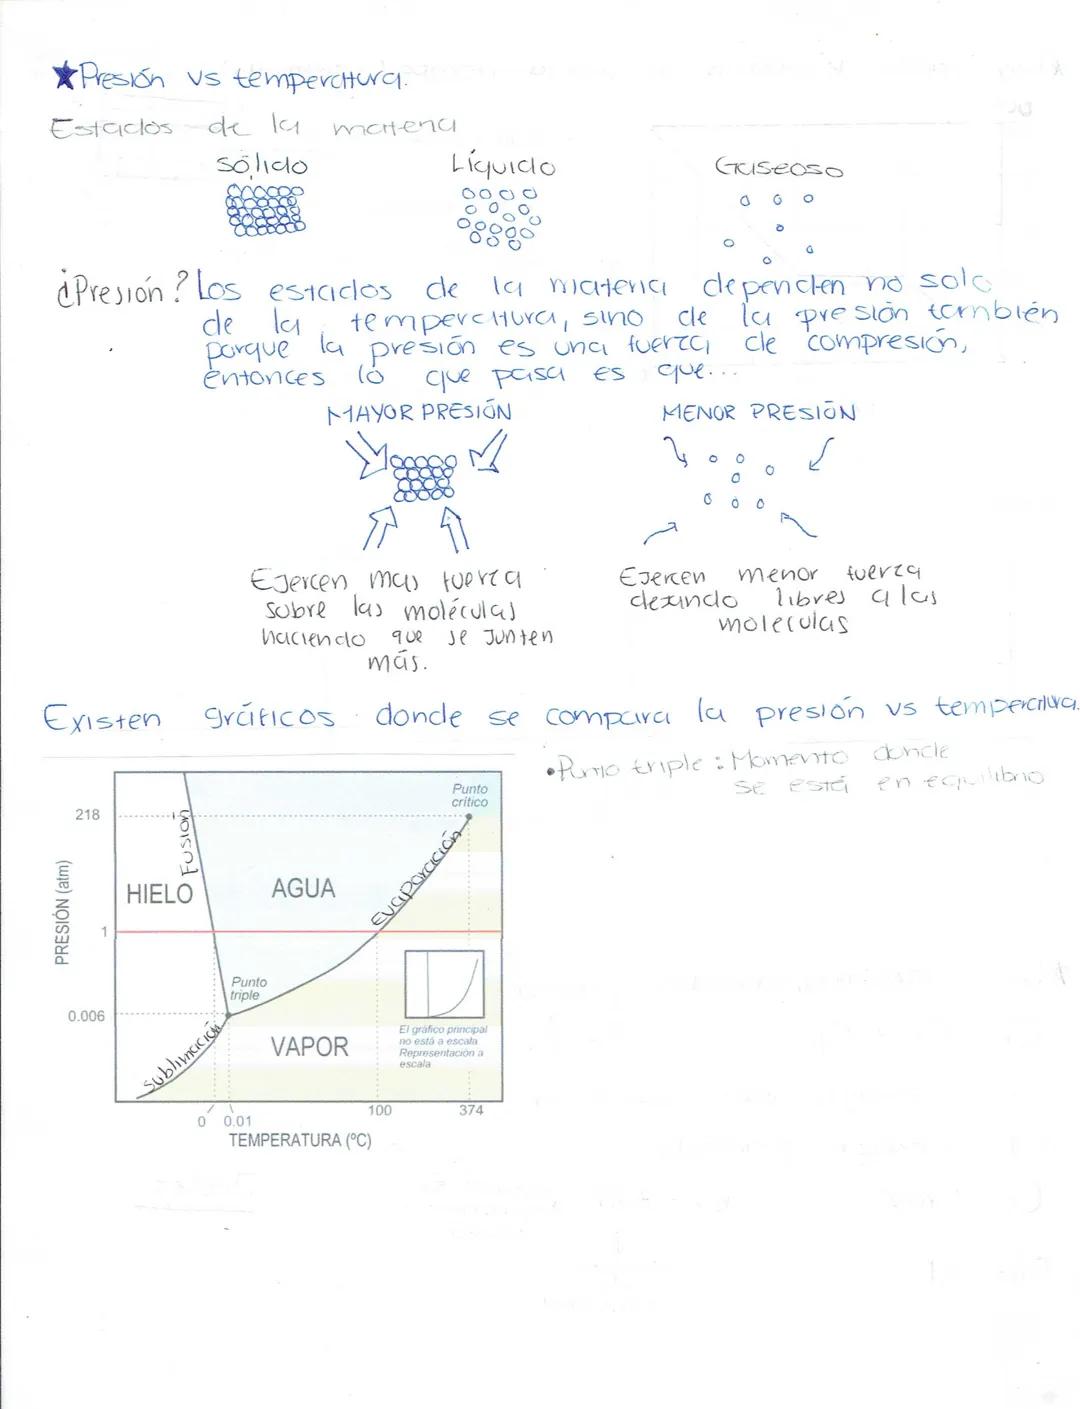 ★Presión vs temperatura.
Estados de la materia
Sólido Líquido Gaseoso
¿Presión? Los estados de la materia dependen no solo
de la temperatura, sino de la presión también
porque la presión es una fuerza de compresión,
entonces lo que pasa es que...
MAYOR PRESIÓN MENOR PRESIÓN
Ejercen mas fuerza
sobre las moléculas
haciendo que se junten
más.
Ejercen menor fuerza
dejando libres a las
moleculas
Existen gráficos donde se compara la presión vs temperatura.
•Punto triple: Momento donde
se está en equilibrio
PRESIÓN (atm)
218
1
0.006
Fusión
HIELO
AGUA
Evaporación
Punto
crítico
Punto
triple
Sublimación
VAPOR
El gráfico principal
no está a escala
Representación a
escala
0 0.01 100 374
TEMPERATURA (ºC)